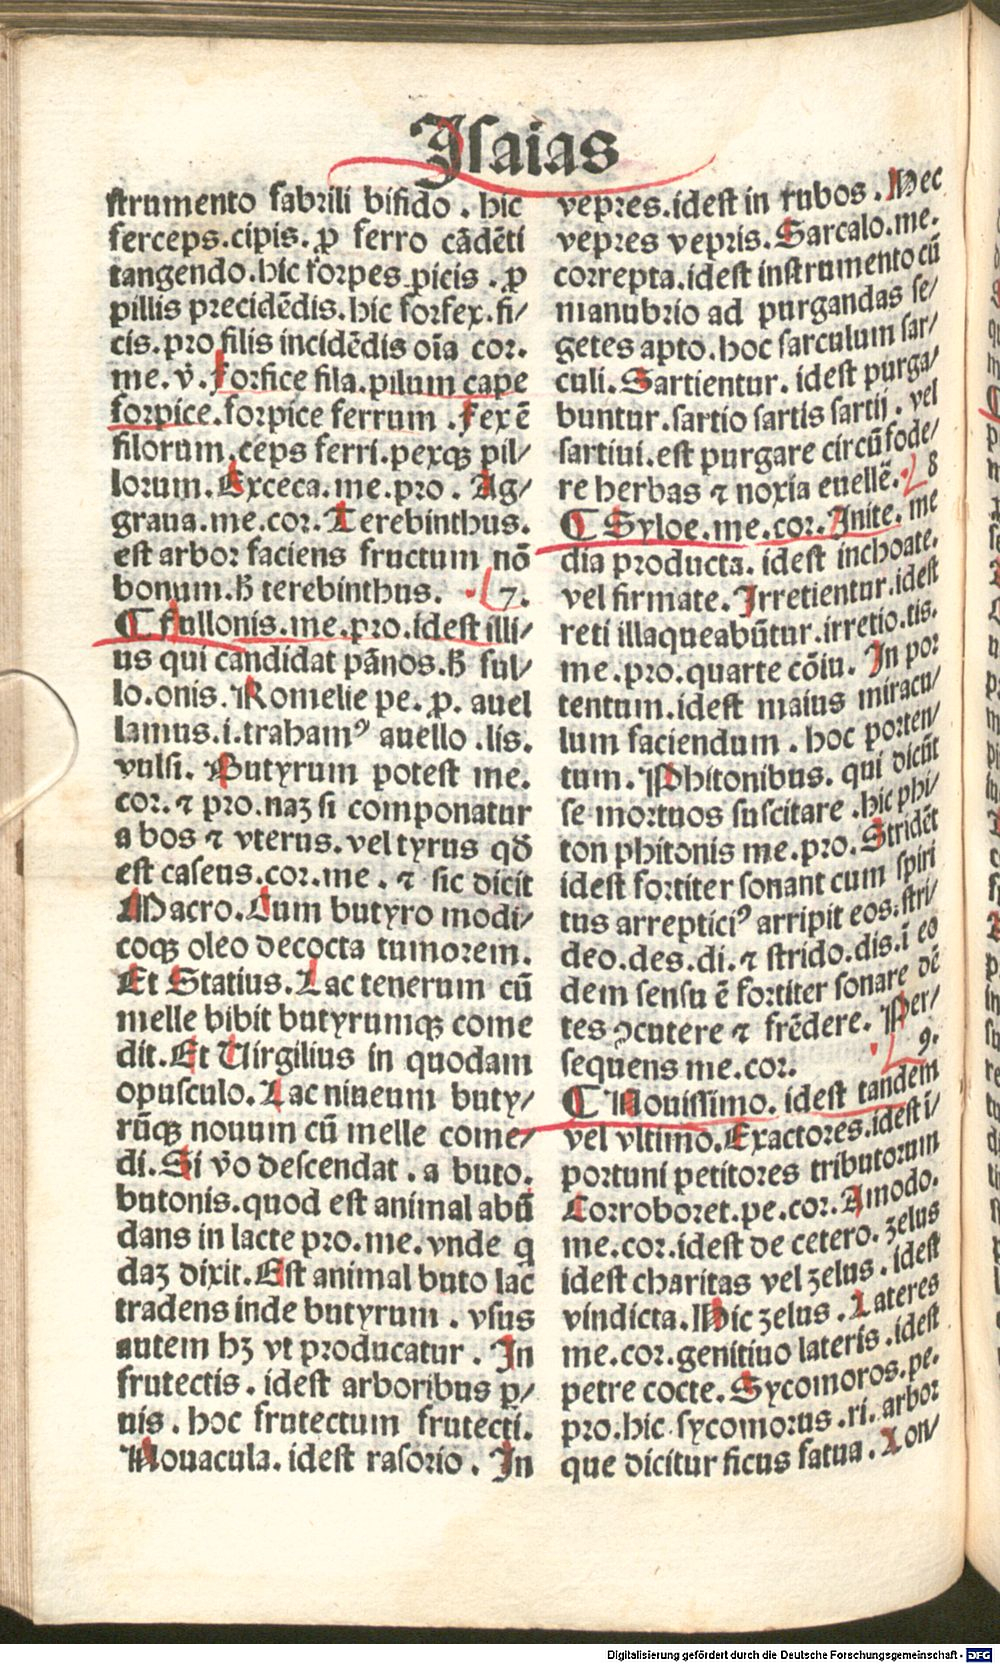 Isaias
strumento fabrili bifido . hic
ferceps.cipis. ꝓ ferro cādēti
tangendo.hic forpes picis . ꝓ
pillis precidēdis.hic forfex.fi/
cis.pro filis incidēdis oīa cor.
me. v̄. Forfice fila.pilum cape
forpice.forpice ferrum . Fex ē
filorum.ceps ferri.pexqꝫ pil/
lorum.Exceca.me.pro . Ag/
graua.me.cor.Terebinthus.
est arbor faciens fructum nō
bonum.h̄ terebinthus. 7.
¶ Fullonis.me.pro.idest illi/
us qui candidat pānos.h̄ ful/
lo.onis. Romelie pe. ꝓ. auel
lamus.i.trahamꝰ auello .lis.
vulsi. Butyrum potest me.
cor. ⁊ pro.naꝫ si componatur
a bos ⁊ vterus.vel tyrus qd̄
est caseus.cor.me . ⁊ sic dicit
Macro.Cum butyro modi/
coqꝫ oleo decocta tumorem.
Et Statius.Lac tenerum cū
melle bibit butyrumqꝫ come
dit.Et Uirgilius in quodam
opusculo.Lac niueum buty/
rūqꝫ nouum cū melle come/
di.Si v̄o descendat . a buto.
butonis.quod est animal abū
dans in lacte pro.me.vnde q
daꝫ dixit.Est animal buto lac
tradens inde butyrum . vsus
autem hꝫ vt producatur . In
frutectis . idest arboribus ꝑ/
uis . hoc frutectum frutecti.
Nouacula. idest rasorio . In
vepres.idest in rubos . Hec
vepres vepris.Sarcalo.me.
correpta.idest instrumento cū
manubrio ad purgandas se/
getes apto.hoc sarculum sar/
culi.Sartientur. idest purga/
buntur.sartio sartis sartij . vel
sartiui.est purgare circū fode/
re herbas ⁊ noxia euellē. 8
¶ Syloe.me.cor.Inite. me
dia producta. idest inchoate.
vel firmate. Irretientur.idest
reti illaqueabūtur.irretio.tis.
me.pro.quarte cōiu. In por
tentum.idest maius miracu/
lum faciendum . hoc porten/
tum. Phitonibus. qui dicūt
se mortuos suscitare .hic phi/
ton phitonis me.pro. Stridēt
idest fortiter sonant cum spiri
tus arrepticiꝰ arripit eos.stri/
deo.des.di.⁊ strido.dis.ī eo
dem sensu ē fortiter sonare dē
tes ꝯcutere ⁊ frēdere. Per/
sequens me.cor. 9.
¶ Nouissimo. idest tandem
vel vltimo.Exactores.idest ī/
portuni petitores tributorum
Corroboret.pe.cor.Amodo.
me.cor.idest de cetero. zelus
idest charitas vel zelus . idest
vindicta.Hic zelus . Lateres
me.cor.genitiuo lateris .idest
petre cocte.Sycomoros.pe.
pro.hic sycomorus .ri. arbor
que dicitur ficus fatua. Lon/
Digitalisierung gefördert durch die Deutsche Forschungsgemeinschaft - DFG